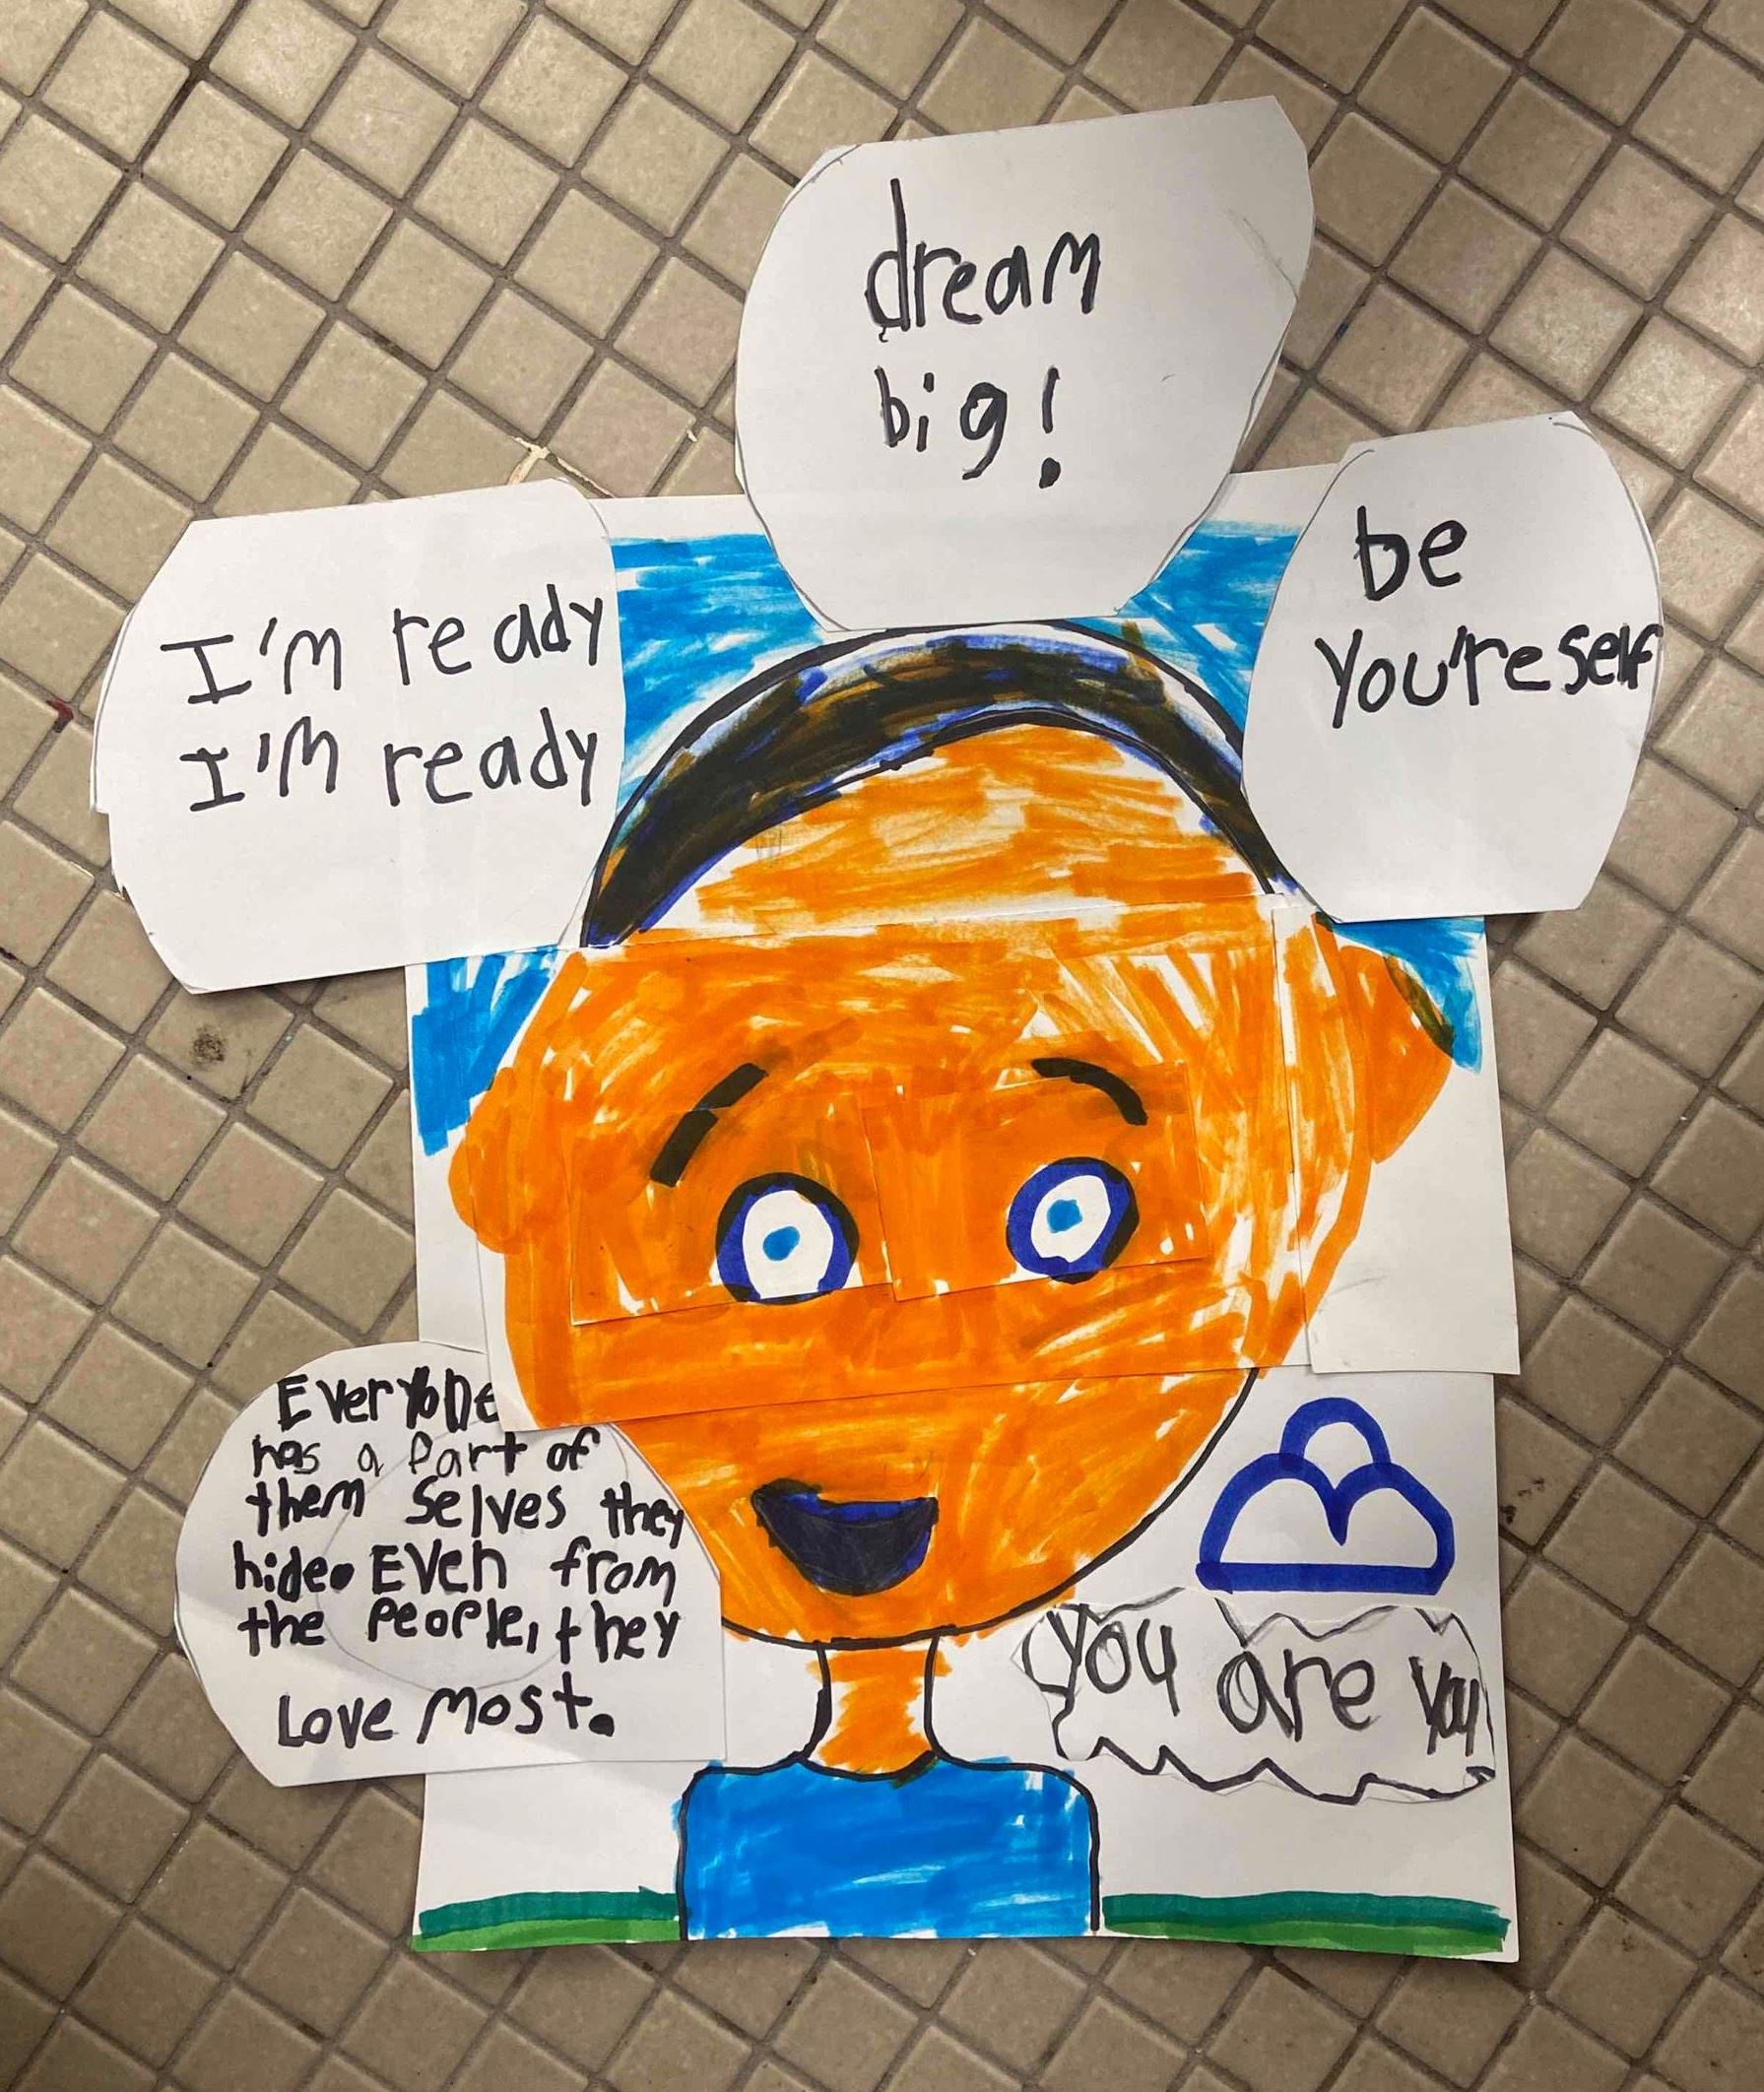 dream
big!
I'm ready
I'm ready
be
You'reself
Everyone
has a part of
them selves they
hide. Even from
the people, they
Love most.
you are you